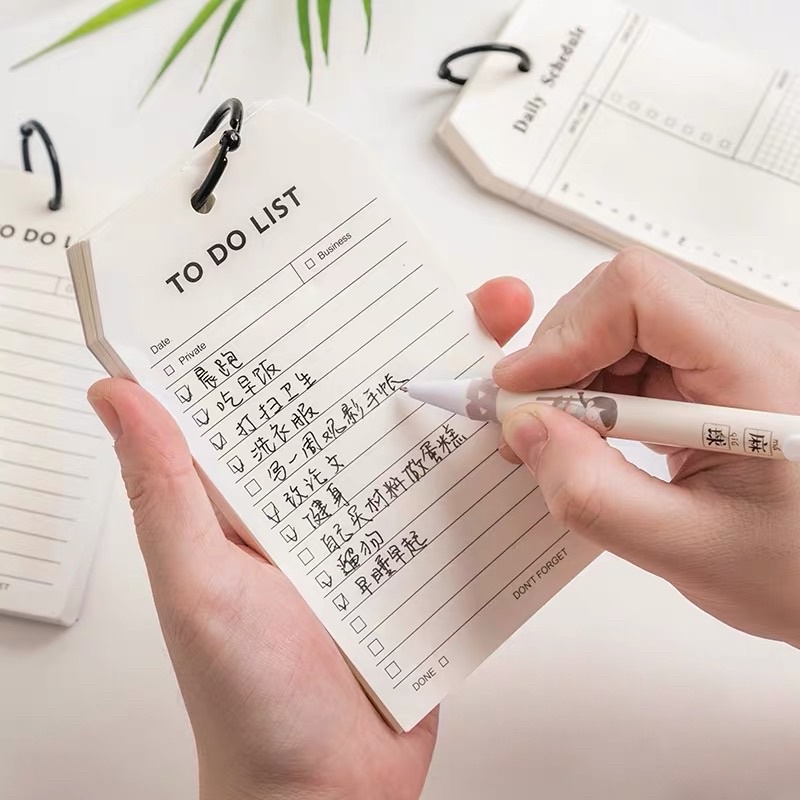 TO DO LIST
Date
Private
Business
晨跑
吃早饭
打扫卫生
洗衣服
写一周观影手帐
改论文
健身
自己买材料做蛋糕
遛狗
早睡早起
DON'T FORGET
DONE
Daily Schedule
TO DO L
má qiú
麻球